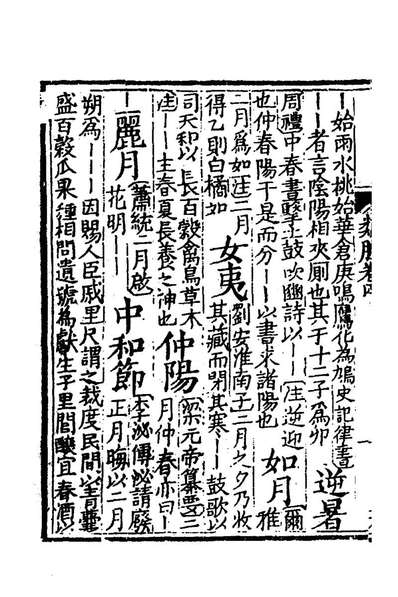 ｜始雨水桃始華倉庚鳴鷹化為鳩史記律書
｜｜者言陰陽相夾厠也其于十二子為卯
逆暑
周禮中春晝擊土鼓吹豳詩以｜｜注逆迎
也仲春陽于是而分｜｜以晝求諸陽也
如月
爾
雅
二月為如注二月
得乙則白橘如
女夷
劉安淮南子二月之夕乃收
其藏而閉其寒｜｜鼓歌以
司天和以長百穀禽鳥草木
注｜｜主春夏長養之神也
仲陽
梁元帝纂要二
月仲春亦曰｜
｜
麗月
蕭統二月啟
花明｜｜
中和節
李泌傳泌請廢
正月晦以二月
朔為｜｜｜因賜人臣戚里尺謂之裁度民間以青囊
盛百穀瓜果種相問遺號為獻生子里閭釀宜春酒以